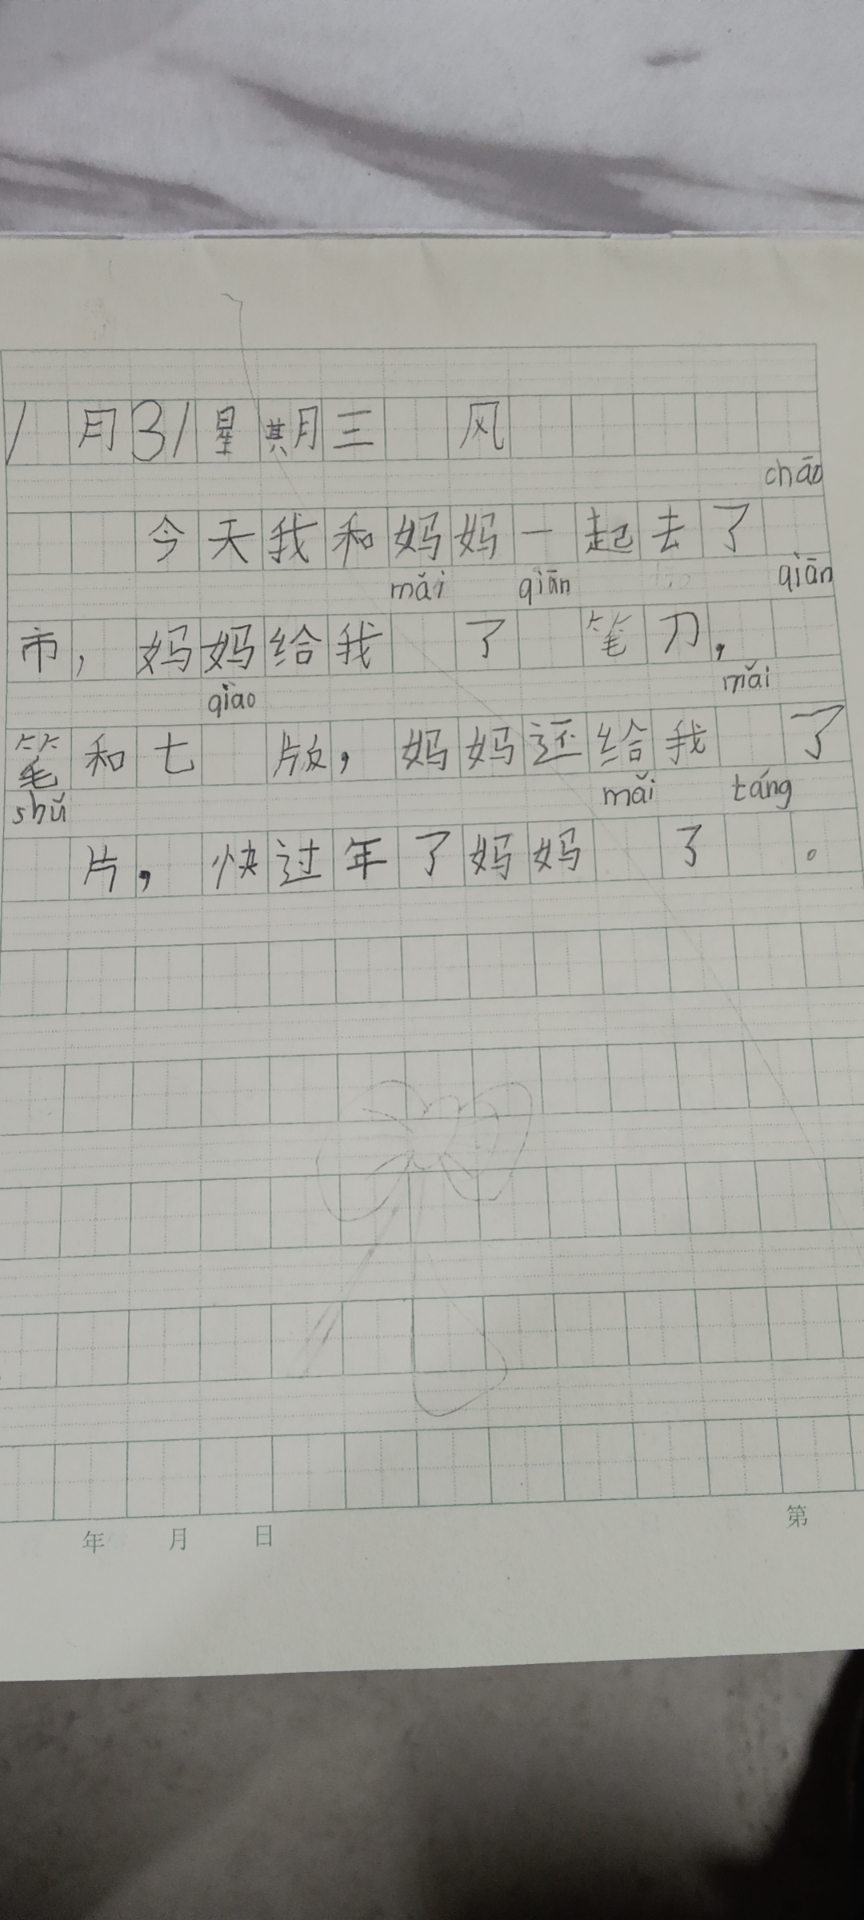 1月31星期三 风
chāo
今天我和妈妈一起去了
mǎi qiān qiān
市，妈妈给我 了 笔刀，
qiǎo mǎi
笔和七 版，妈妈还给我 了
shǔ mǎi táng
片，快过年了妈妈 了 。
年 月 日 第